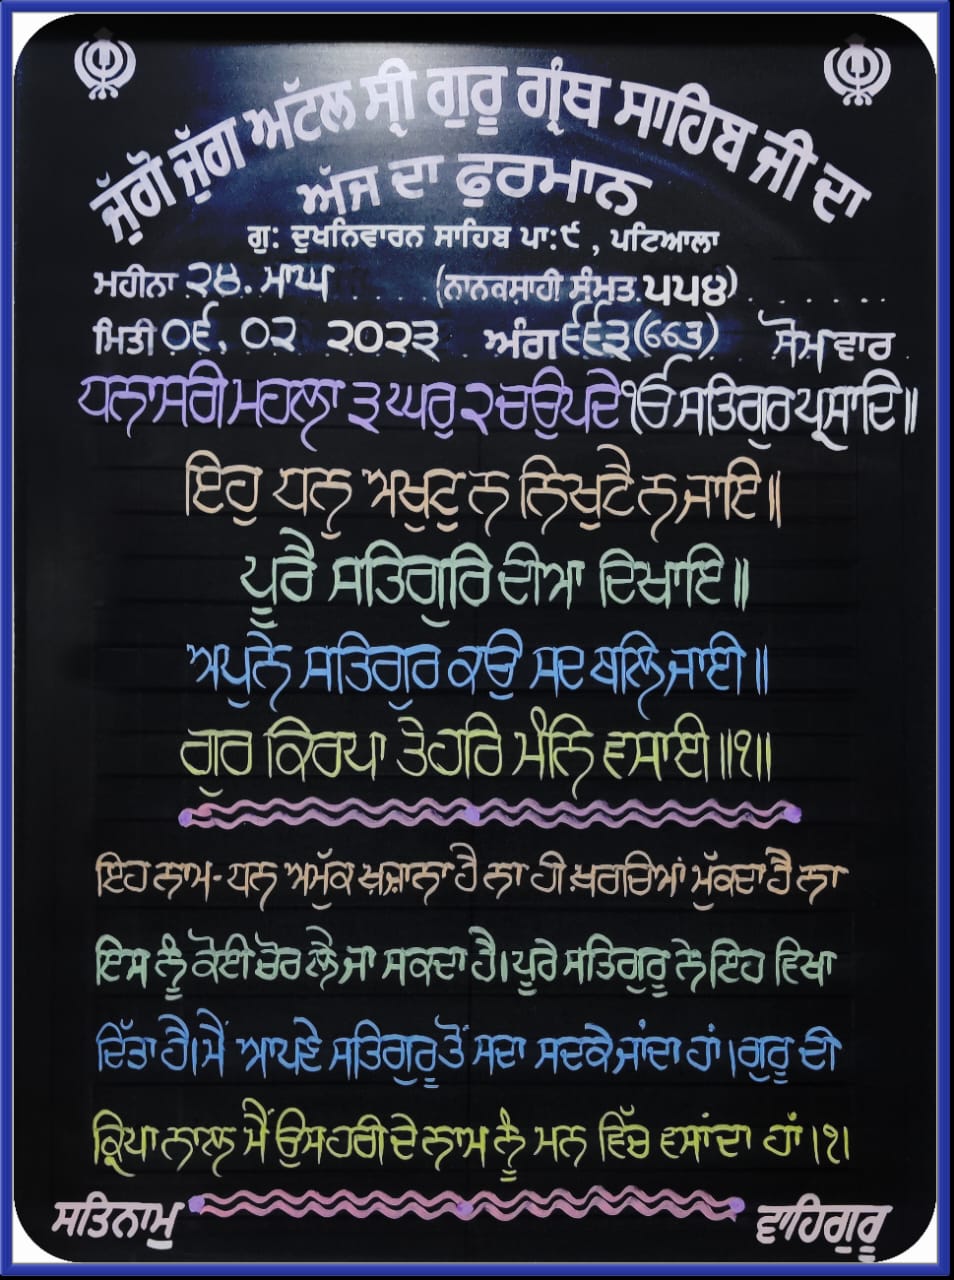 ਜੁੱਗੋ ਜੁੱਗ ਅਟੱਲ ਸ੍ਰੀ ਗੁਰੂ ਗ੍ਰੰਥ ਸਾਹਿਬ ਜੀ ਦਾ
ਅੱਜ ਦਾ ਫੁਰਮਾਨ
ਗੁ: ਦੁਖਨਿਵਾਰਨ ਸਾਹਿਬ ਪਾ:੯ , ਪਟਿਆਲਾ
ਮਹੀਨਾ ੨੪. ਮਾਘ (ਨਾਨਕਸ਼ਾਹੀ ਸੰਮਤ ੫੫੪)
ਮਿਤੀ ੦੬. ੦੨ ੨੦੨੩ ਅੰਗ ੬੬੩(663) ਸੋਮ ਵਾਰ
ਧਨਾਸਰੀ ਮਹਲਾ ੩ ਘਰੁ ੨ ਚਉਪਦੇ ੴ ਸਤਿਗੁਰ ਪ੍ਰਸਾਦਿ॥
ਇਹੁ ਧਨੁ ਅਖੁਟੁ ਨ ਨਿਖੁਟੈ ਨ ਜਾਇ॥
ਪੂਰੈ ਸਤਿਗੁਰਿ ਦੀਆ ਦਿਖਾਇ॥
ਅਪੁਨੇ ਸਤਿਗੁਰ ਕਉ ਸਦ ਬਲਿ ਜਾਈ॥
ਗੁਰ ਕਿਰਪਾ ਤੇ ਹਰਿ ਮੰਨਿ ਵਸਾਈ॥੧॥
ਇਹ ਨਾਮ-ਧਨ ਅਮੁੱਕ ਖ਼ਜ਼ਾਨਾ ਹੈ ਨਾ ਹੀ ਖ਼ਰਚਿਆਂ ਮੁੱਕਦਾ ਹੈ ਨਾ
ਇਸ ਨੂੰ ਕੋਈ ਚੋਰ ਲੈ ਜਾ ਸਕਦਾ ਹੈ। ਪੂਰੇ ਸਤਿਗੁਰੂ ਨੇ ਇਹ ਵਿਖਾ
ਦਿੱਤਾ ਹੈ। ਮੈਂ ਆਪਣੇ ਸਤਿਗੁਰੂ ਤੋਂ ਸਦਾ ਸਦਕੇ ਜਾਂਦਾ ਹਾਂ। ਗੁਰੂ ਦੀ
ਕ੍ਰਿਪਾ ਨਾਲ ਮੈਂ ਉਸ ਹਰੀ ਦੇ ਨਾਮ ਨੂੰ ਮਨ ਵਿੱਚ ਵਸਾਂਦਾ ਹਾਂ।੧।
ਸਤਿਨਾਮੁ ਵਾਹਿਗੁਰੂ